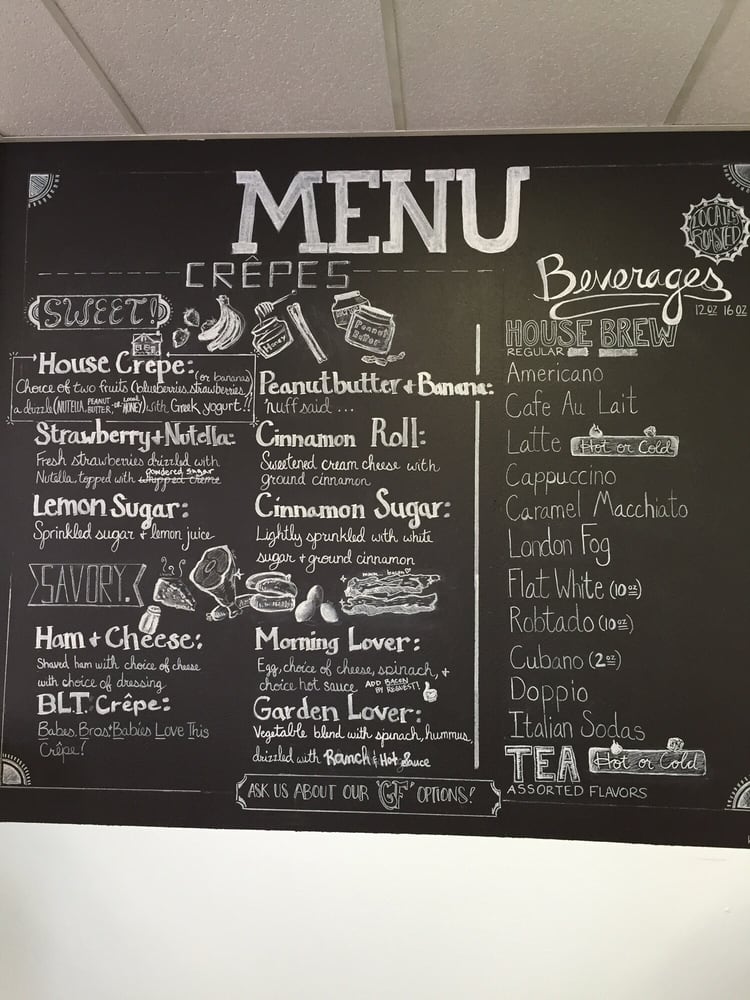 MENU
LOCALLY
ROASTED
CRÊPES
SWEET!
Honey
Peanut
Butter
House Crêpe:
(or bananas)
Choice of two fruits (blueberries, strawberries)
a drizzle (NUTELLA, PEANUT BUTTER, or Local HONEY) with Greek yogurt!!
Strawberry + Nutella:
Fresh strawberries drizzled with
powdered sugar
Nutella topped with whipped crème
Lemon Sugar:
Sprinkled sugar + lemon juice
Peanutbutter + Banana:
'nuff said ...
Cinnamon Roll:
Sweetened cream cheese with
ground cinnamon
Cinnamon Sugar:
Lightly sprinkled with white
sugar + ground cinnamon
SAVORY.
Ham + Cheese:
Shaved ham with choice of cheese
with choice of dressing
BLT Crêpe:
Babes, Bros + Babies Love This
Crêpe!
mmm... bacon
Morning Lover:
Egg, choice of cheese, spinach, +
choice hot sauce ADD BACON BY REQUEST!
Garden Lover:
Vegetable blend with spinach, hummus,
drizzled with Ranch & Hot Sauce
ASK US ABOUT OUR "GF" OPTIONS!
Beverages
12 oz 16 oz
HOUSE BREW
REGULAR
Americano
Cafe Au Lait
Latte Hot or Cold
Cappuccino
Caramel Macchiato
London Fog
Flat White (10 oz)
Robtado (10 oz)
Cubano (2 oz)
Doppio
Italian Sodas
TEA Hot or Cold
ASSORTED FLAVORS